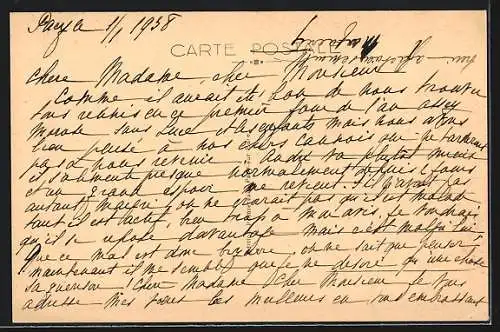 1/1 1938
CARTE POSTALE
Chere Madame, cher Monsieur
Comme il aurait été bon de nous trouver
tous reunis en ce premier jour de l'an assez
morose sans Luce et ses enfants mais nous avons
bien pensé à nos chers qui ne tarderont
pas à nous revenir. André va plutôt mieux
il s'alimente presque normalement depuis 2 jours
et un grand espoir me revient. Il n'avait pas
autant maigri, on ne croirait pas qu'il est malade
tant il est actif, bien trop à mon avis, je voudrais
qu'il se repose davantage mais c'est malgré lui
Que ce mal est donc bizarre, on ne sait que penser,
maintenant il me semble que je ne désire qu'une chose
sa guérison! Chere Madame, Cher Monsieur je vous
adresse mes voeux les meilleurs en vous embrassant